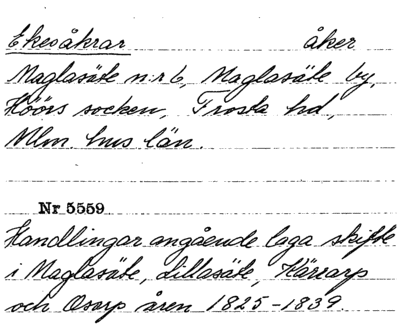 Ekesåkrar åker
Maglasäte n:r 6, Maglasäte by,
Höörs socken, Frosta hd,
Mlm. hus län.
Nr 5559
Handlingar angående laga skifte
i Maglasäte, Lillasäte, Kärrarp
och Osarp åren 1825-1839.